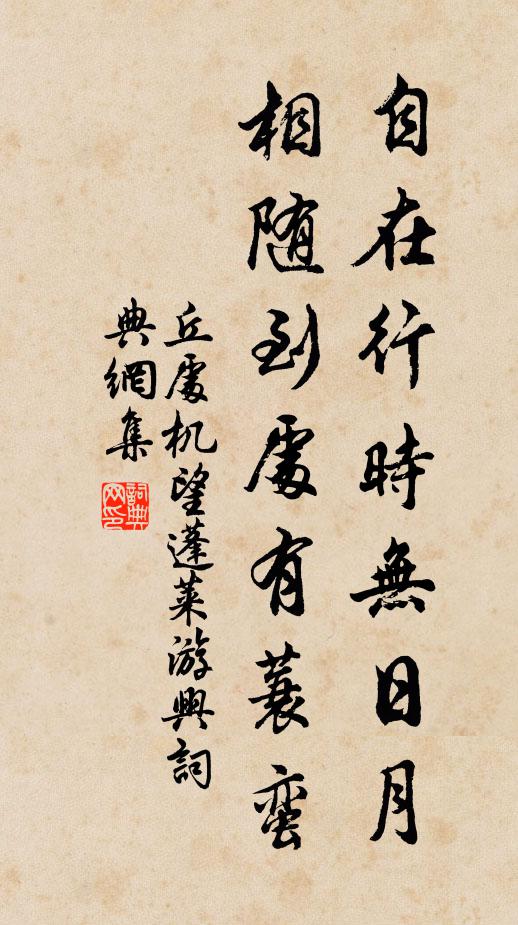 自在行時無日月
相随到處有蓑蛮
丘處机望蓬莱游興詞
典網集
詞典
网印